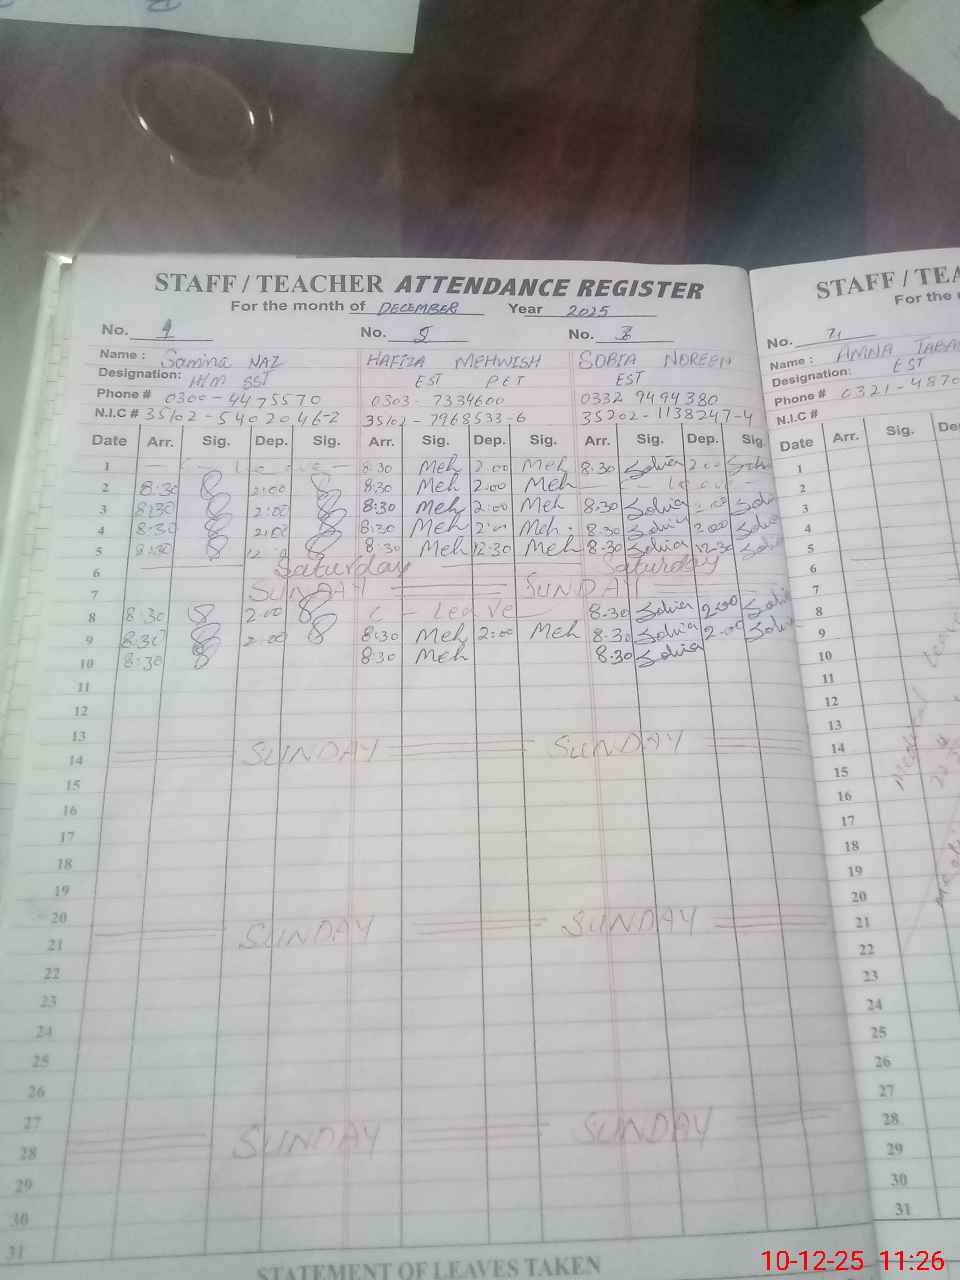 STAFF / TEACHER ATTENDANCE REGISTER
For the month of DECEMBER Year 2025
No. 4 No. 5 No. 3
Name : Samina NAZ HAFIZA MEHWISH SOBIA NOREEN
Designation: H/M SST EST PET EST
Phone # 0300-4475570 0303-7334600 0332 9494380
N.I.C # 35102-5402046-2 35102-7968533-6 35202-1138247-4
Date Arr. Sig. Dep. Sig. Arr. Sig. Dep. Sig. Arr. Sig. Dep. Sig.
1 8:30 Meh 2:00 Meh 8:30 Sobia 2:00
2 8:30 2:00 8:30 Meh 2:00 Meh Leave
3 8:30 2:00 8:30 Meh 2:00 Meh 8:30 Sobia 2:00
4 8:30 2:00 8:30 Meh 2:00 Meh 8:30 Sobia 2:00
5 8:30 8:30 Meh 12:30 Meh 8:30 Sobia 12:30
6 Saturday Saturday
7 SUNDAY SUNDAY
8 8:30 2:00 Leave 8:30 Sobia 2:00
9 8:30 2:00 8:30 Meh 2:00 Meh 8:30 Sobia 2:00
10 8:30 8:30 Meh 8:30 Sobia
11
12
13
14 SUNDAY SUNDAY
15
16
17
18
19
20
21 SUNDAY SUNDAY
22
23
24
25
26
27
28 SUNDAY SUNDAY
29
30
31
STATEMENT OF LEAVES TAKEN
STAFF / TEA
For the
No.
Name : AMNA
Designation: EST
Phone # 0321-4870
N.I.C #
Date Arr. Sig.
1
2
3
4
5
6
7
8
9
10
11
12
13
14
15
16
17
18
19
20
21
22
23
24
25
26
27
28
29
30
31
Medical leave
10-12-25 11:26